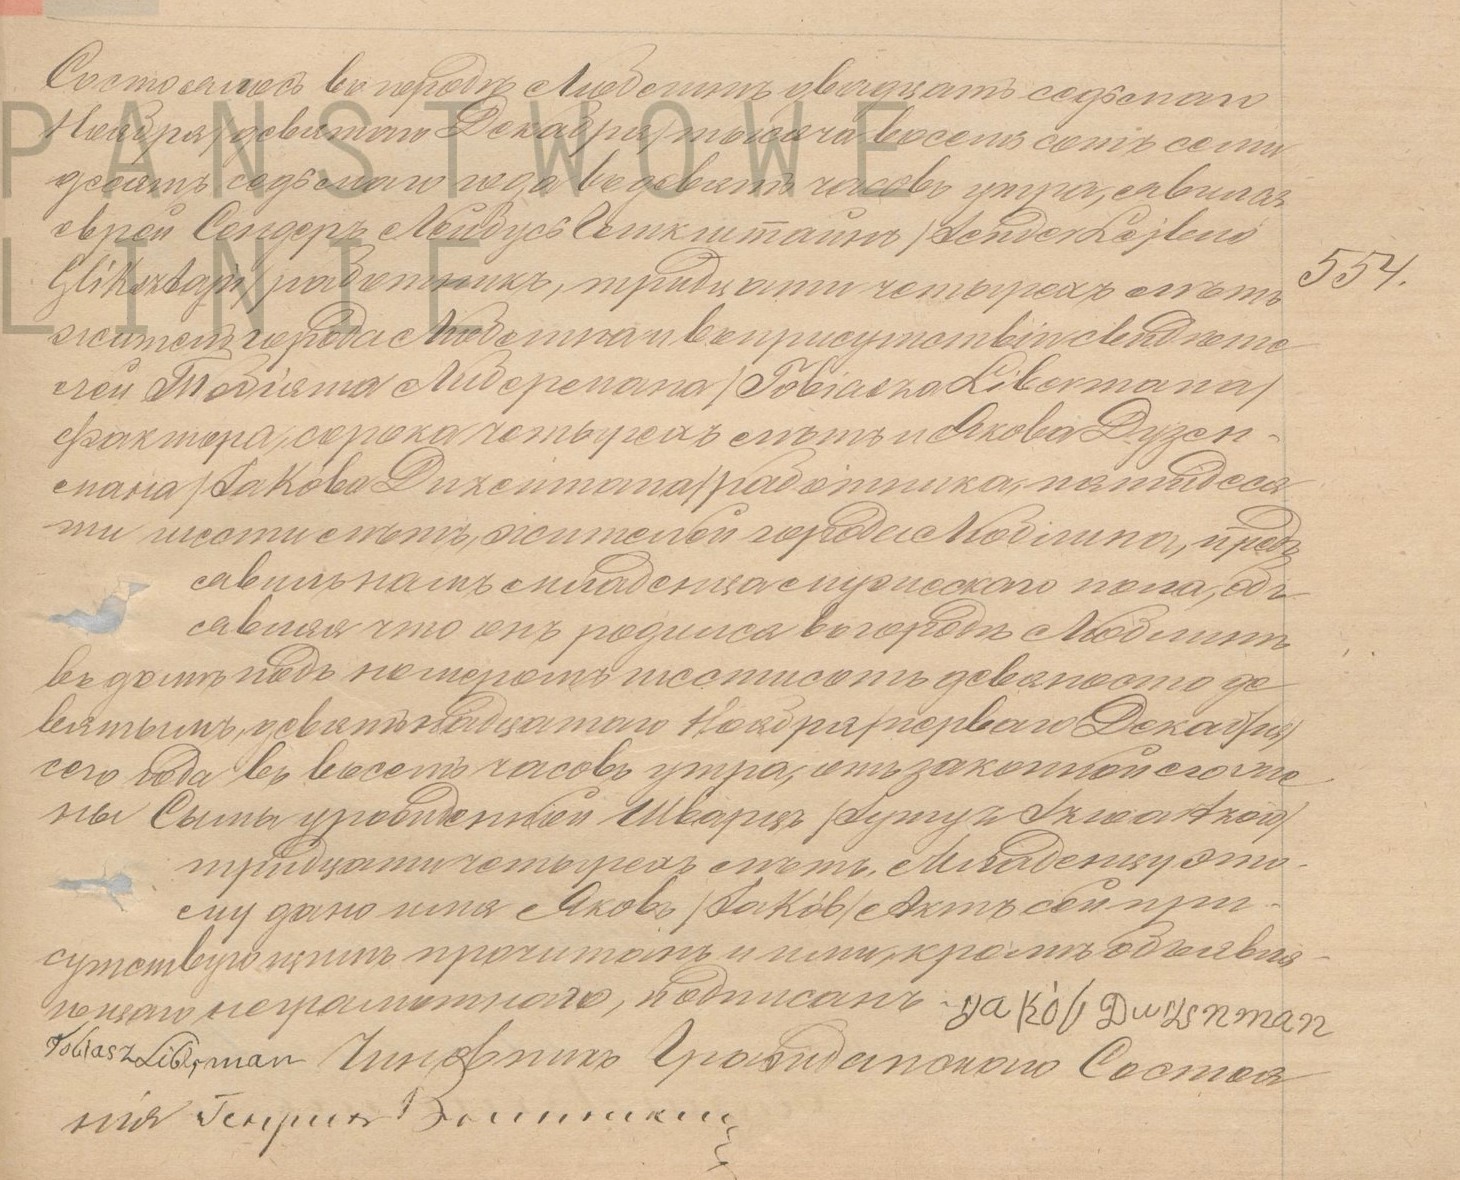 PANSTWOWE
LINIE
Состоялось въ городѣ Люблинѣ двадцать седьмаго
Ноября /девятаго Декабря/ тысяча восемь сотъ семи
десятъ седьмаго года въ девять часовъ утра, явился
еврей Сендеръ Лейбусь Гликштайнъ /Sender Lejbuś
Gliksztajn/ работникъ, тридцати четырехъ лѣтъ
житель города Люблина и въ присутствіи свидѣте
лей Тобіяша Либермана /Tobiasza Libermana/
фактора, сорока четырехъ лѣтъ и Якова Дузен-
мана /Jakóba /работника, пятидеся
ти шести лѣтъ, жителей города Люблина, предъ
явилъ намъ младенца мужескаго пола, объ
являя что онъ родился въ городѣ Люблинѣ
въ домѣ подъ номеромъ шестисотъ девяносто де
вятымъ, девятнадцатаго Ноября /перваго Декабря/
сего года въ восемь часовъ утра, отъ законной его же
ны урожденной Шварцъ
тридцати четырехъ лѣтъ. Младенцу это-
му дано имя Яковъ /Jakób/ Актъ сей при-
сутствующимъ прочитанъ и ими, кромѣ объявля-
ющаго неграмотнаго, подписанъ Jakób
Tobiasz Liberman Чиновникъ Гражданскаго Состоя
нія Генрикъ
554.